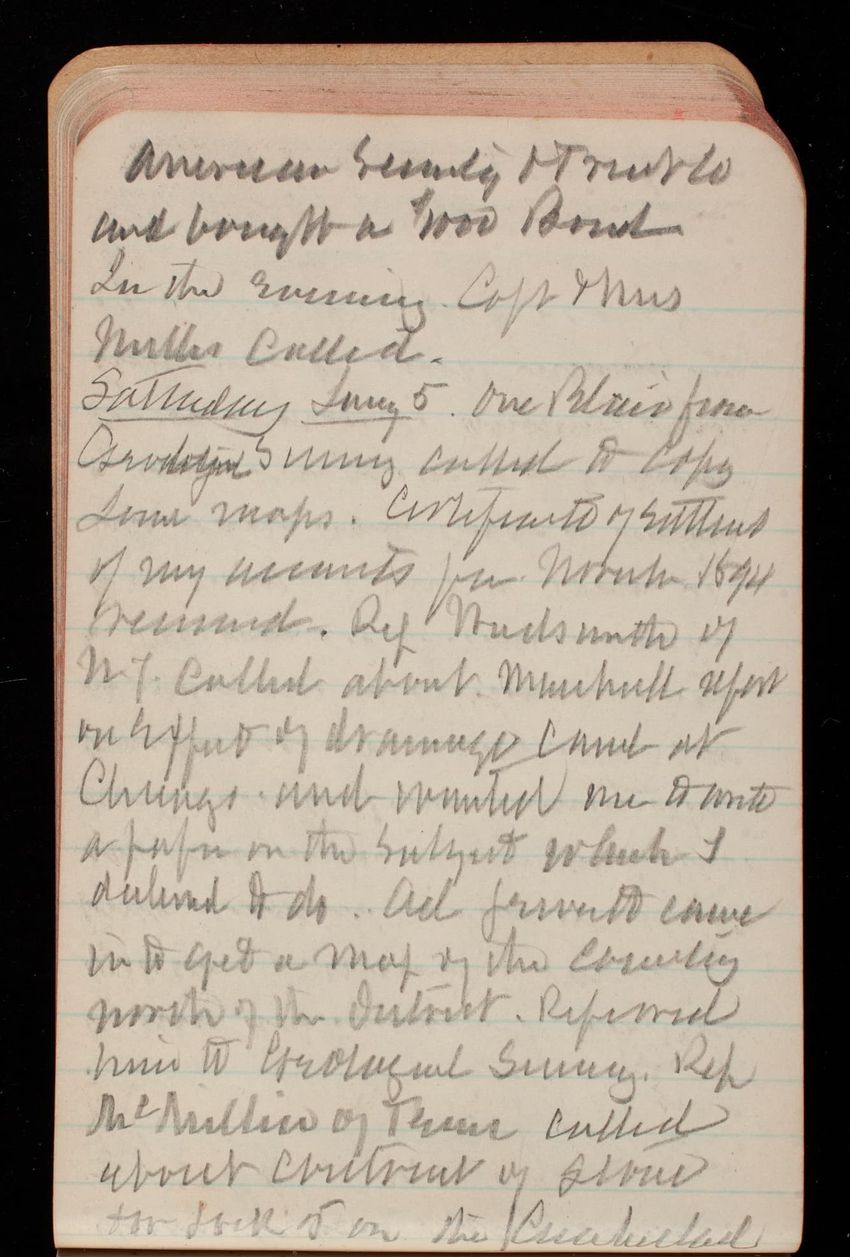 American Security & Trust Co
and bought a $1000 Bond
In the evening Capt & Mrs
Miller Called.
Saturday Jany 5. One Blair from
Geological Survey called to copy
some maps. Certificate of Settlement
of my accounts for November 1894
received. Rep Wadsworth of
N.Y. Called about Marshall report
on Effect of drainage Canal at
Chicago and wanted me to write
a paper on the Subject which I
declined to do. Col came
in to get a map of the Country
north of the District. Referred
him to Geological Survey. Rep
McMillin of Tenn called
about Contract of Stone
for Lock 5 on the Cumberland